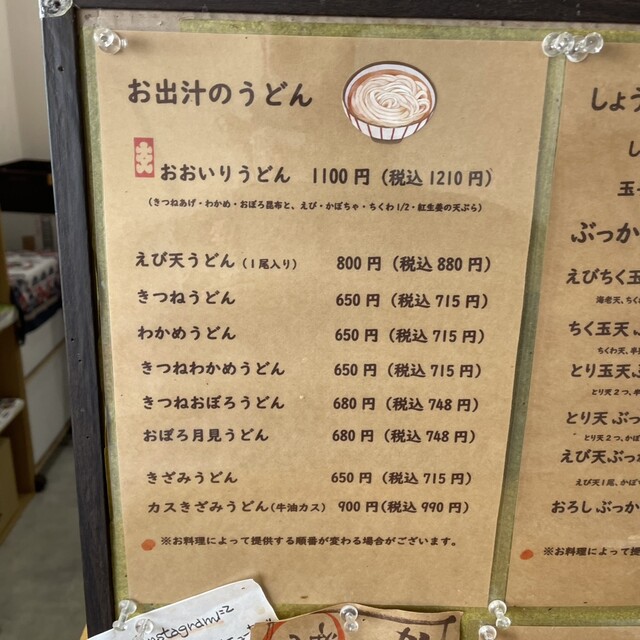 お出汁のうどん
おおいりうどん 1100円(税込1210円)
(きつねあげ・わかめ・おぼろ昆布と、えび・かぼちゃ・ちくわ1/2・紅生姜の天ぷら)
えび天うどん(1尾入り) 800円(税込880円)
きつねうどん 650円(税込715円)
わかめうどん 650円(税込715円)
きつねわかめうどん 650円(税込715円)
きつねおぼろうどん 680円(税込748円)
おぼろ月見うどん 680円(税込748円)
きざみうどん 650円(税込715円)
カスきざみうどん(牛油カス) 900円(税込990円)
※お料理によって提供する順番が変わる場合がございます。
しょう
し
玉
ぶっか
えびちく玉
海老天、ちく
ちく玉天ぶ
ちくわ天、半
とり玉天ぶ
とり天2つ、半
とり天ぶっ
とり天2つ、かぼ
えび天ぶっか
えび天1尾、かぼ
おろしぶっか
※お料理によって提
Instagramに